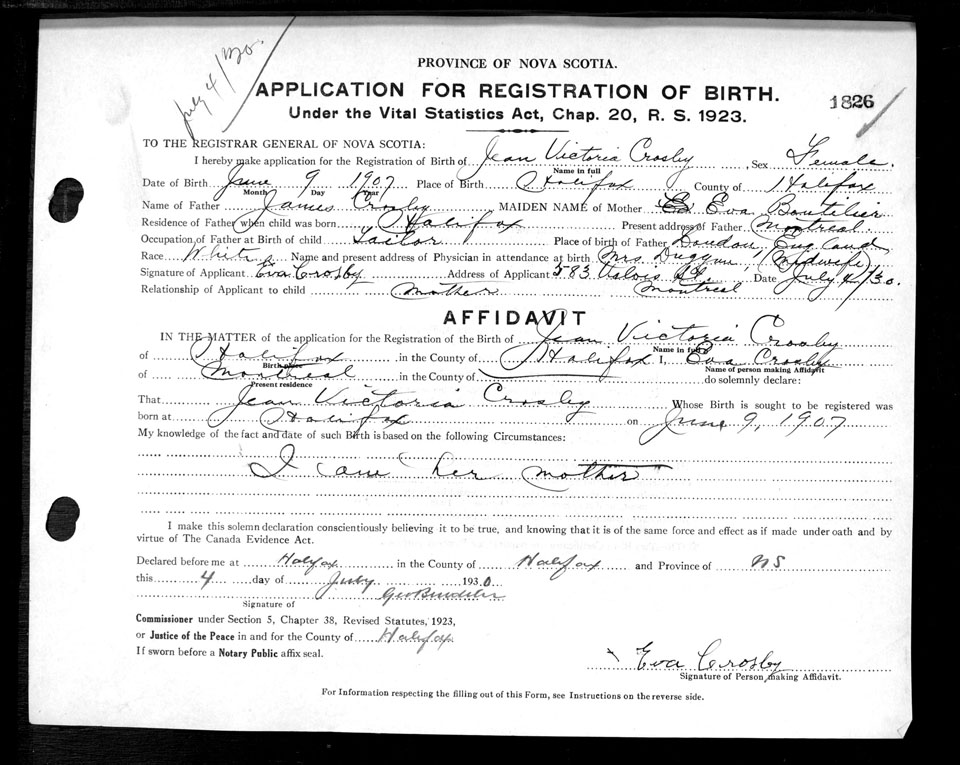 July 4/30.
PROVINCE OF NOVA SCOTIA.
APPLICATION FOR REGISTRATION OF BIRTH.
1826
Under the Vital Statistics Act, Chap. 20, R. S. 1923.
TO THE REGISTRAR GENERAL OF NOVA SCOTIA:
I hereby make application for the Registration of Birth of Jean Victoria Crosby Sex Female.
Name in full
Date of Birth June 9 1907 Place of Birth Halifax County of Halifax
Month Day Year
Name of Father James Crosby MAIDEN NAME of Mother Eva Boutilier
Residence of Father when child was born Halifax Present address of Father Montreal.
Occupation of Father at Birth of child Tailor Place of birth of Father London, England
Race White Name and present address of Physician in attendance at birth Mrs. Duggan, (Midwife)
Signature of Applicant Eva Crosby Address of Applicant 583 St. Date July 4/30.
Relationship of Applicant to child mother Montreal
AFFIDAVIT
IN THE MATTER of the application for the Registration of the Birth of Jean Victoria Crosby
Name in full
of Halifax in the County of Halifax I, Eva Crosby
Birth place Name of person making Affidavit
of Montreal in the County of do solemnly declare:
Present residence
That Jean Victoria Crosby Whose Birth is sought to be registered was
born at Halifax on June 9, 1907
My knowledge of the fact and date of such Birth is based on the following Circumstances:
I am her mother
I make this solemn declaration conscientiously believing it to be true, and knowing that it is of the same force and effect as if made under oath and by
virtue of The Canada Evidence Act.
Declared before me at Halifax in the County of Halifax and Province of NS
this 4 day of July 1930
Signature of
Commissioner under Section 5, Chapter 38, Revised Statutes, 1923,
or Justice of the Peace in and for the County of Halifax
If sworn before a Notary Public affix seal.
Eva Crosby
Signature of Person making Affidavit.
For Information respecting the filling out of this Form, see Instructions on the reverse side.